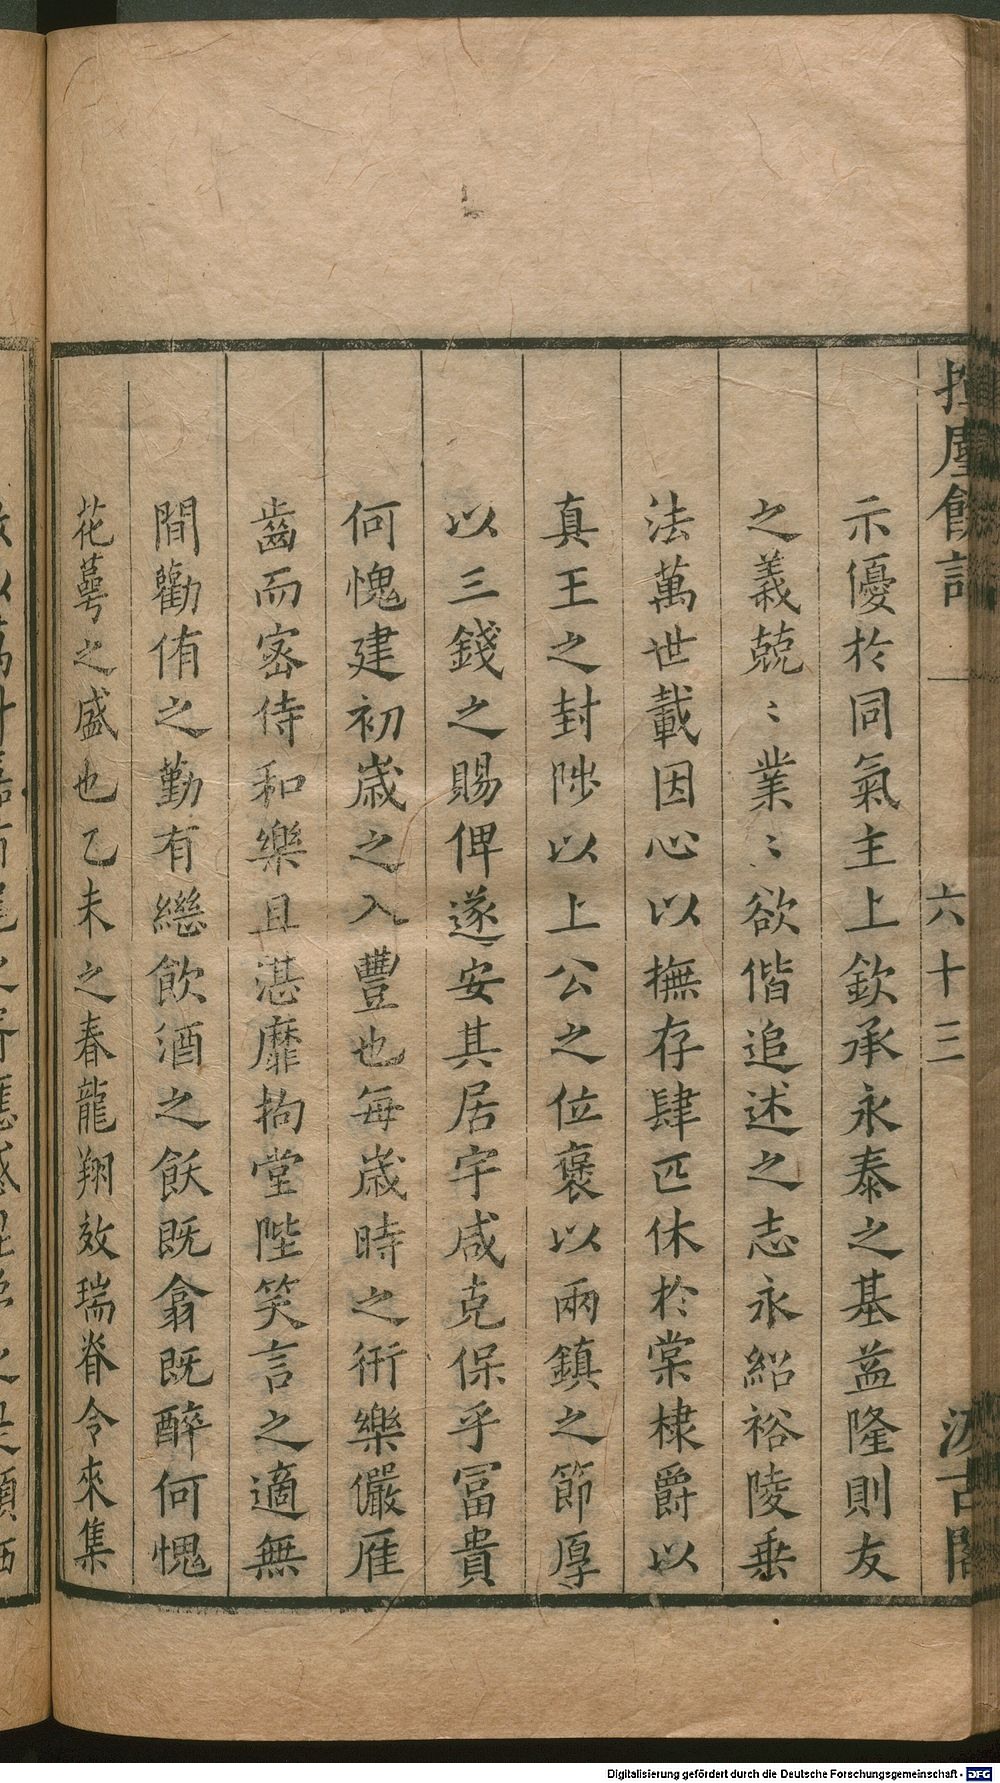 揮麈餘話 一 六十三 汲古閣
示優於同氣主上欽承永泰之基益隆則友
之義兢〻業〻欲偕追述之志永紹裕陵垂
法萬世載因心以撫存肆匹休於棠棣爵以
真王之封陟以上公之位褒以兩鎮之節厚
以三錢之賜俾遂安其居宇咸克保乎冨貴
何愧建初歲之入豐也每歲時之衎樂儼雁
齒而宻侍和樂且湛靡拘堂陛笑言之適無
間勸侑之勤有繼飲酒之飫既翕既醉何愧
花萼之盛也乙未之春龍翔效瑞脊令來集
Digitalisierung gefördert durch die Deutsche Forschungsgemeinschaft - DFG